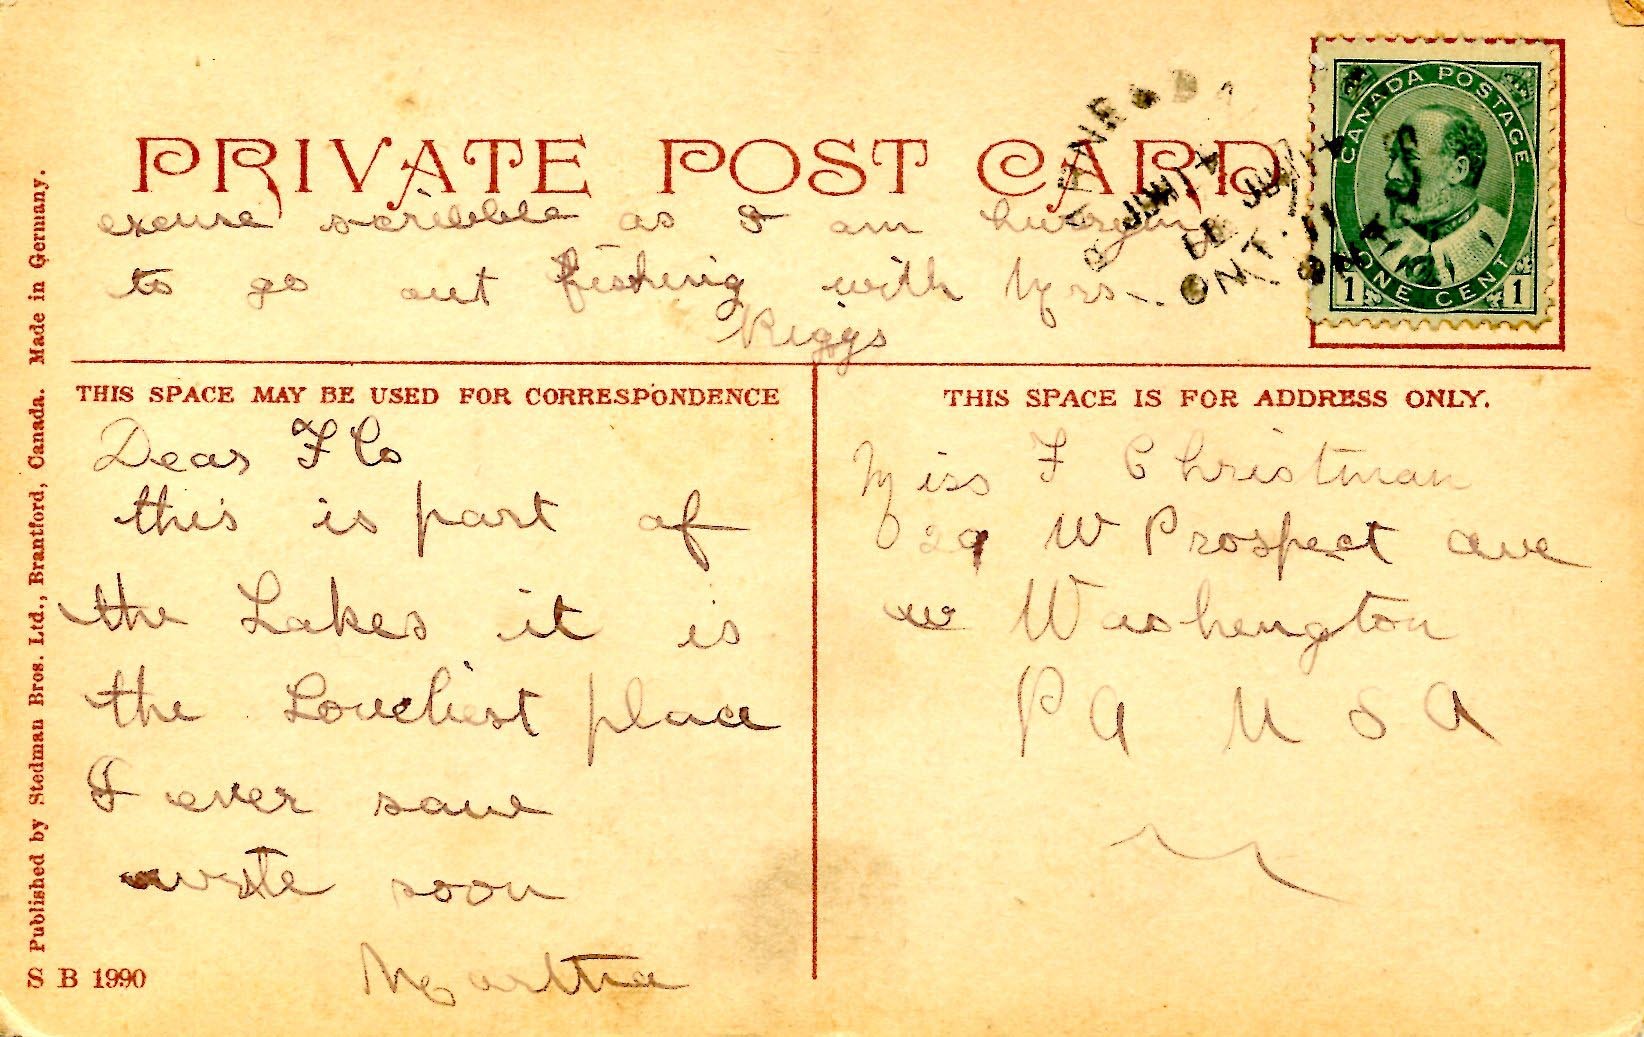 PRIVATE POST CARD
excuse scribble as I am hurrying
to go out fishing with Mrs
Riggs
THIS SPACE MAY BE USED FOR CORRESPONDENCE
Dear Flo
this is part of
the Lakes it is
the Loveliest place
I ever saw
write soon
Martha
THIS SPACE IS FOR ADDRESS ONLY.
Miss F Christman
29 W Prospect ave
Washington
PA U S A
CANADA POSTAGE
ONE CENT
1 1
JUN
ONT.
11
Published by Stedman Bros. Ltd., Brantford, Canada. Made in Germany.
S B 1990